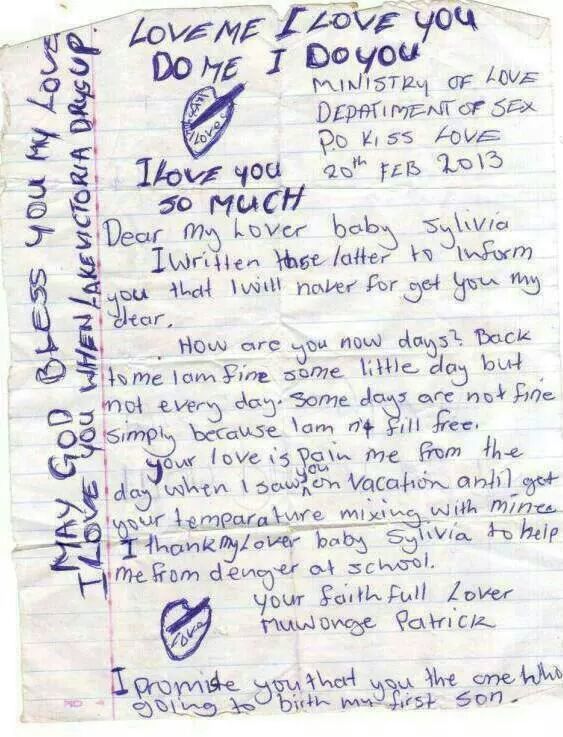 LOVE ME I LOVE YOU
DO ME I DO YOU
MINISTRY OF LOVE
DEPATIMENT OF SEX
PO KISS LOVE
20th FEB 2013
Love
I LOVE YOU
SO MUCH
Dear my Lover baby Sylivia
I written these latter to inform
you that I will naver for get you my
dear.
How are you now days? Back
to me I am fine some little day but
not every day. Some days are not fine
simply because I am not fill free.
your love is pain me from the
day when I saw you on vacation antil get
your temparature mixing with minee
I thank my Lover baby Sylivia to help
me from denger at school.
your faithfull Lover
Muwonge Patrick
Love
I promise you that you the one who
going to birth my first son.
MAY GOD BLESS YOU MY LOVE
I LOVE YOU WHEN LAKE VICTORIA DRYS UP